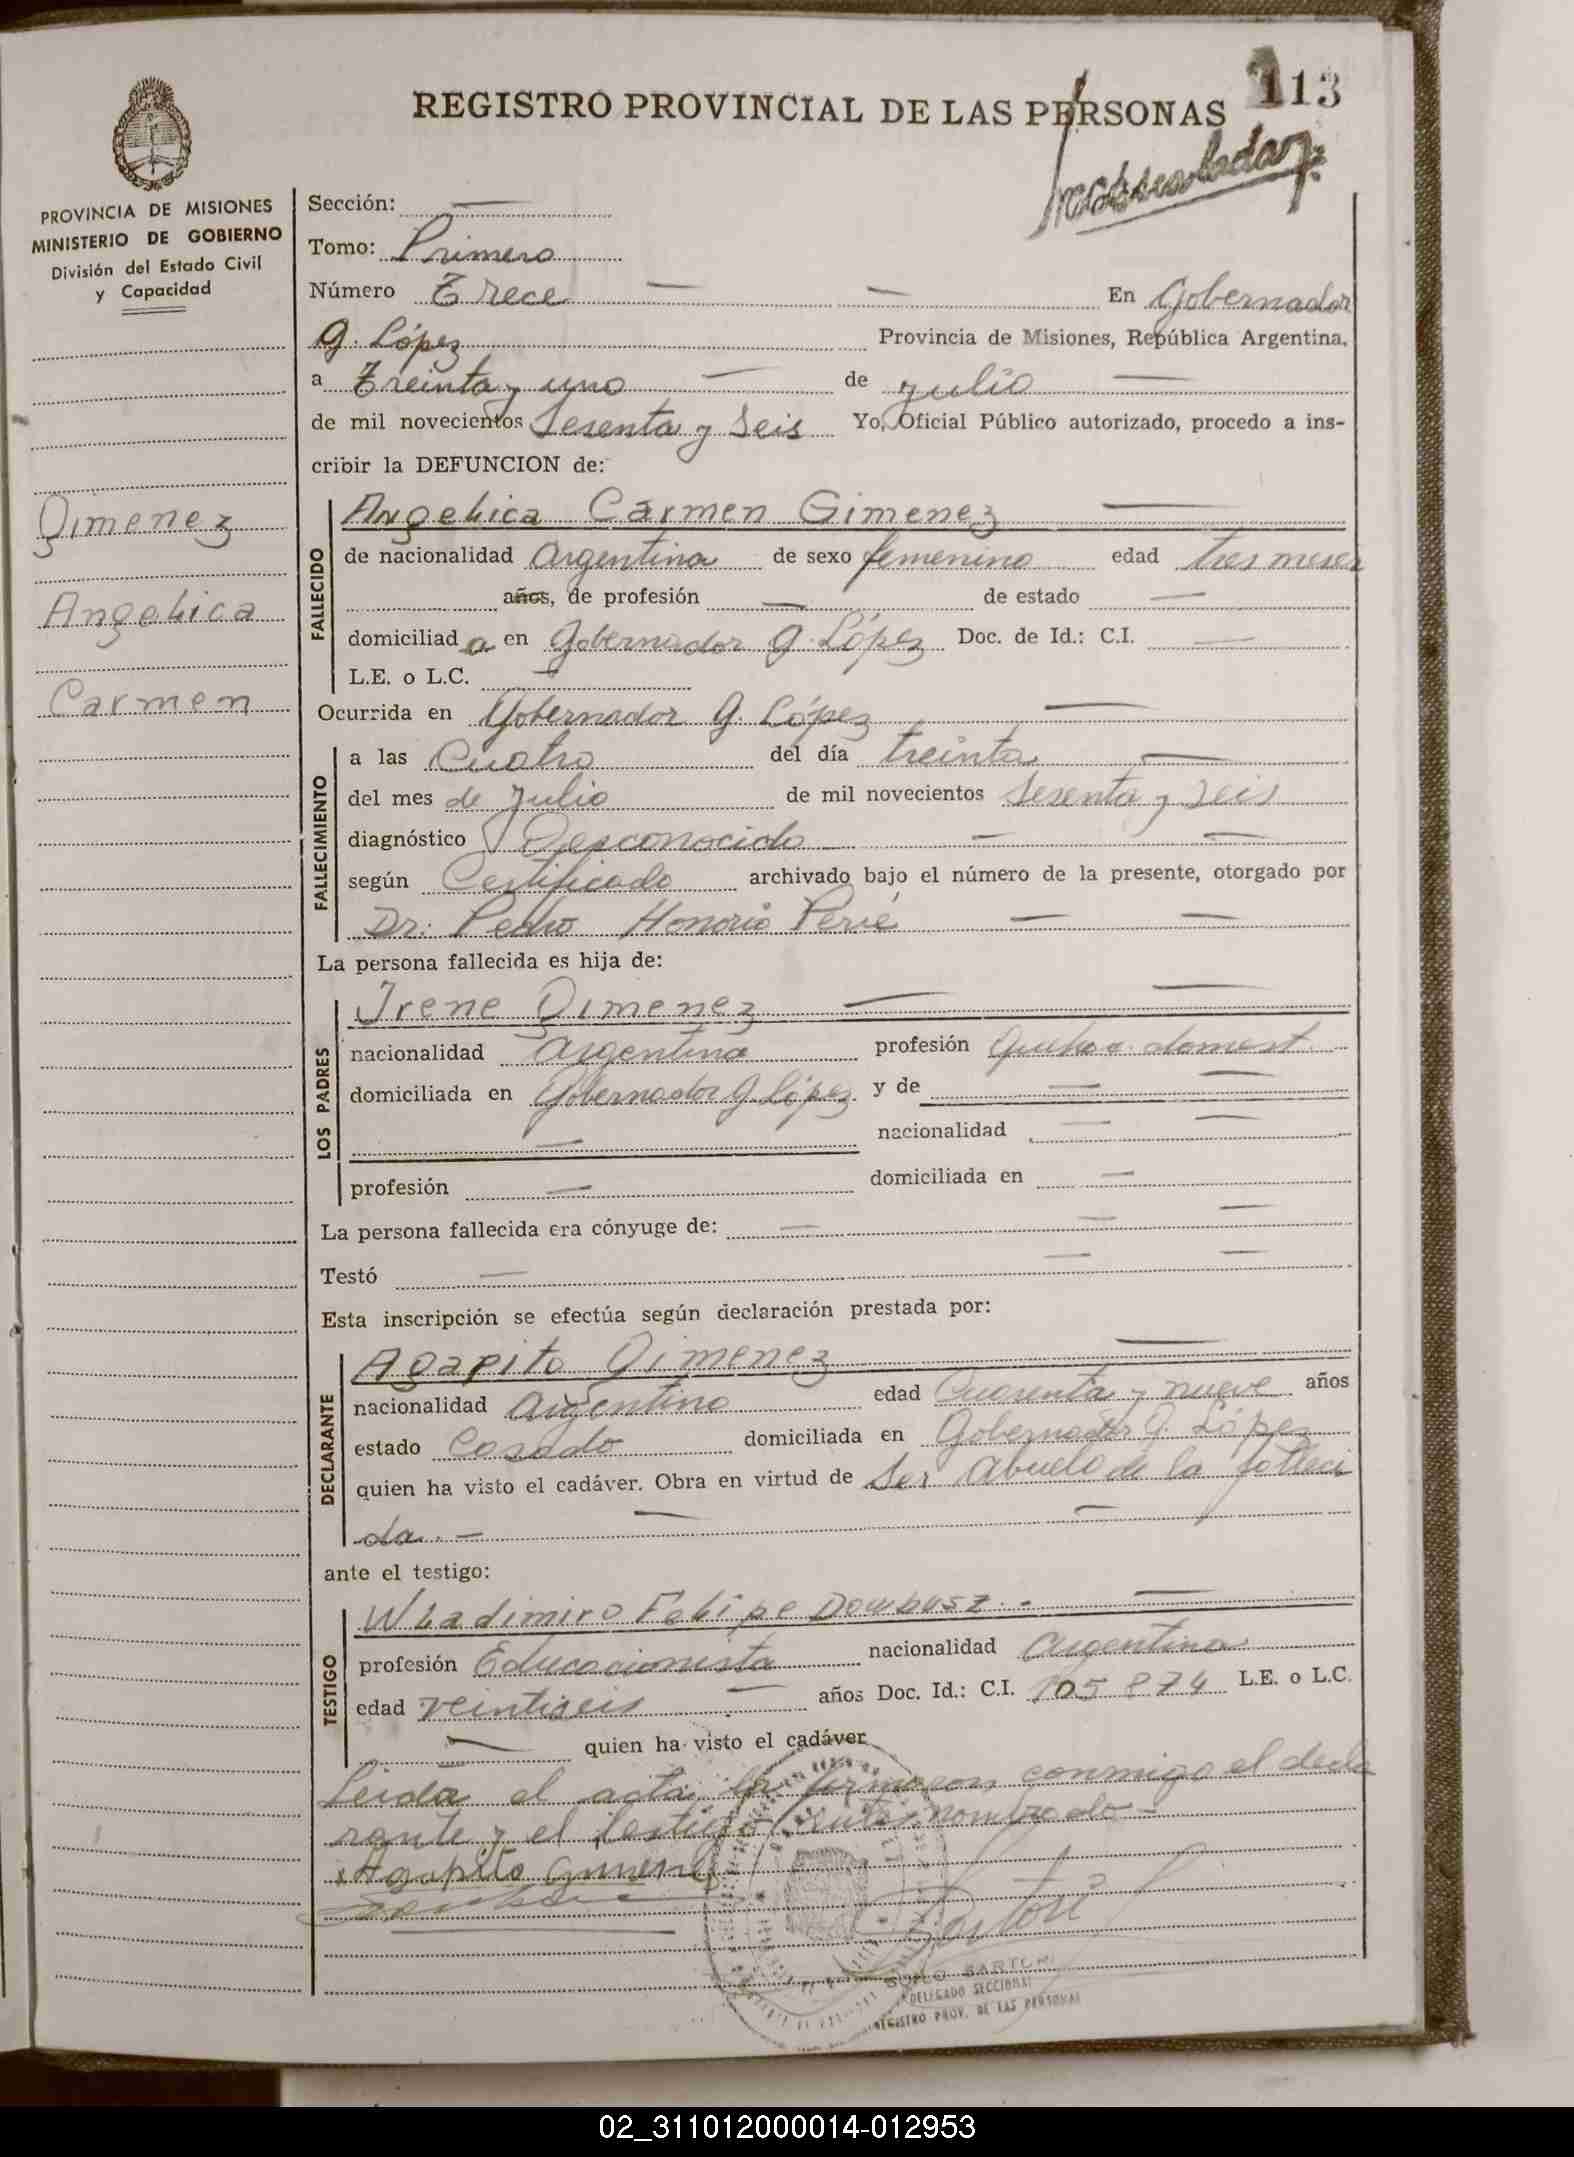 113
REGISTRO PROVINCIAL DE LAS PERSONAS
PROVINCIA DE MISIONES
MINISTERIO DE GOBIERNO
División del Estado Civil
y Capacidad
Gimenez
Angelica
Carmen
Sección: —
Tomo: Primero
Número Trece — — En Gobernador
G. López Provincia de Misiones, República Argentina,
a Treinta y uno — de julio —
de mil novecientos Sesenta y Seis Yo, Oficial Público autorizado, procedo a ins-
cribir la DEFUNCION de:
FALLECIDO
Angelica Carmen Gimenez —
de nacionalidad Argentina de sexo femenino edad tres meses
años, de profesión — de estado —
domiciliada en Gobernador G. López Doc. de Id.: C.I. —
L.E. o L.C. —
Ocurrida en Gobernador G. López —
FALLECIMIENTO
a las Cuatro del día treinta —
del mes de Julio de mil novecientos Sesenta y Seis
diagnóstico Desconocido — —
según Certificado archivado bajo el número de la presente, otorgado por
Dr. Pedro Honorio Pervé — —
La persona fallecida es hija de:
LOS PADRES
Irene Gimenez — —
nacionalidad Argentina profesión domest.
domiciliada en Gobernador G. López y de — —
— nacionalidad — —
profesión — domiciliada en —
La persona fallecida era cónyuge de: — — —
Testó — — —
Esta inscripción se efectúa según declaración prestada por:
DECLARANTE
Agapito Gimenez —
nacionalidad Argentino edad Cuarenta y nueve años
estado Casado domiciliada en Gobernador G. López
quien ha visto el cadáver. Obra en virtud de Ser abuelo de la falleci
da. — — —
ante el testigo:
TESTIGO
Wladimiro Felipe Dombusz. - —
profesión Educacionista nacionalidad Argentina
edad veintiseis — años Doc. Id.: C.I. 105874 L.E. o L.C.
— quien ha visto el cadáver
Leida el acta la firmaron conmigo el decla
rante y el testigo nombrado —
Agapito Gimenez
Sartori
SARTORI
DELEGADO SECCIONAL
REGISTRO PROV. DE LAS PERSONAS
02_311012000014-012953